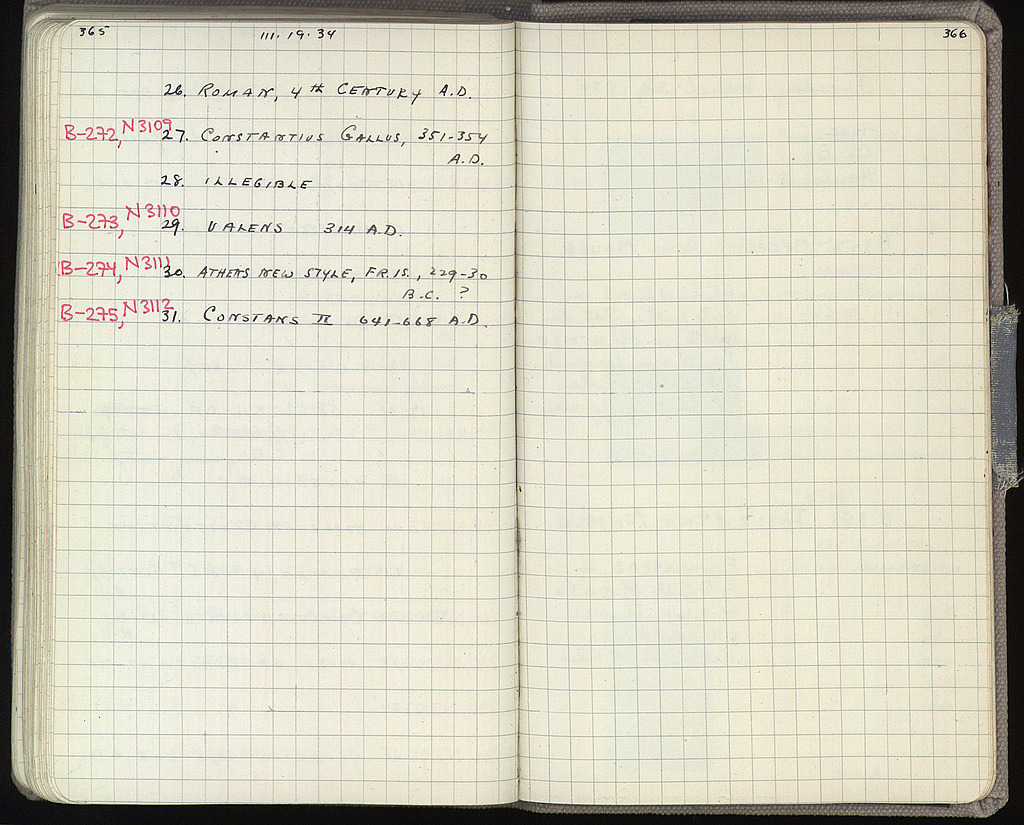 365 III.19.34
26. ROMAN, 4th CENTURY A.D.
B-272, N3109 27. CONSTANTIUS GALLUS, 351-354
A.D.
28. ILLEGIBLE
B-273, N3110 29. VALENS 314 A.D.
B-274, N3111 30. ATHENS NEW STYLE, FR. IS., 229-30
B.C. ?
B-275, N3112 31. CONSTANS II 641-668 A.D.
366